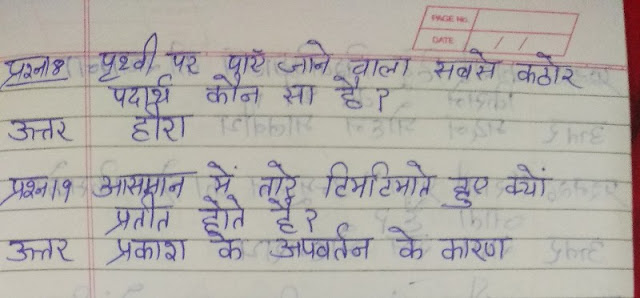 PAGE NO.
DATE / /
प्रश्न8 पृथ्वी पर पाए जाने वाला सबसे कठोर
पदार्थ कौन सा है?
उत्तर हीरा
प्रश्न9 आसमान में तारे टिमटिमाते हुए क्यों
प्रतीत होते है?
उत्तर प्रकाश के अपवर्तन के कारण